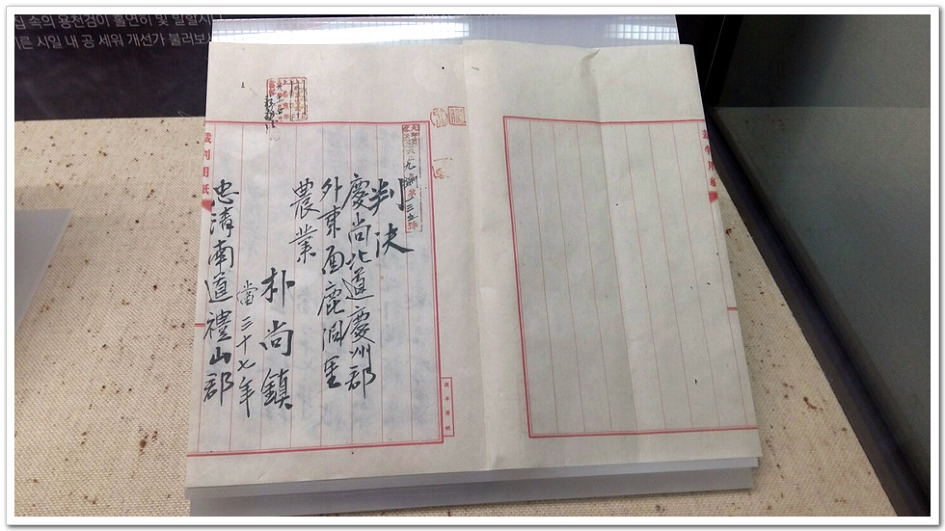 속의 용천검이 홀연히 빛 발할시
른 시일 내 공 세워 개선가 불러보
判決
慶尚北道慶州郡
外東面鹿洞里
農業
朴尚鎮
當三十七年
忠清南道禮山郡
裁判用紙